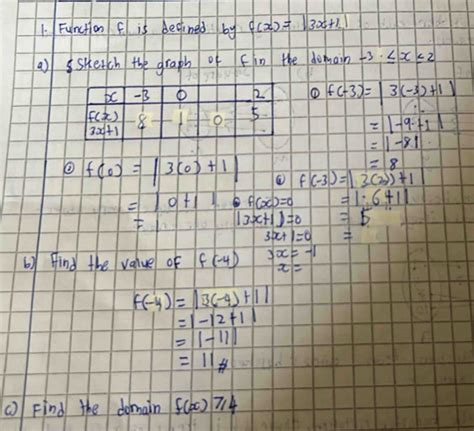 1. Function f is defined by f(x) = |3x+1|
a) Sketch the graph of f in the domain -3 ≤ x ≤ 2
x -3 0 2
f(x) 8 1 0 5
3x+1
① f(-3) = |3(-3)+1|
= |-9+1|
= |-8|
= 8
f(0) = |3(0)+1|
= |0+1|
f(x)=0
|3x+1|=0
3x+1=0
3x=-1
x=
f(-3)=|3(2)+1|
=|6+1|
=
b) Find the value of f(-4)
f(-4) = |3(-4)+1|
= |-12+1|
= |-11|
= 11#
c) Find the domain f(x) ≥ 4